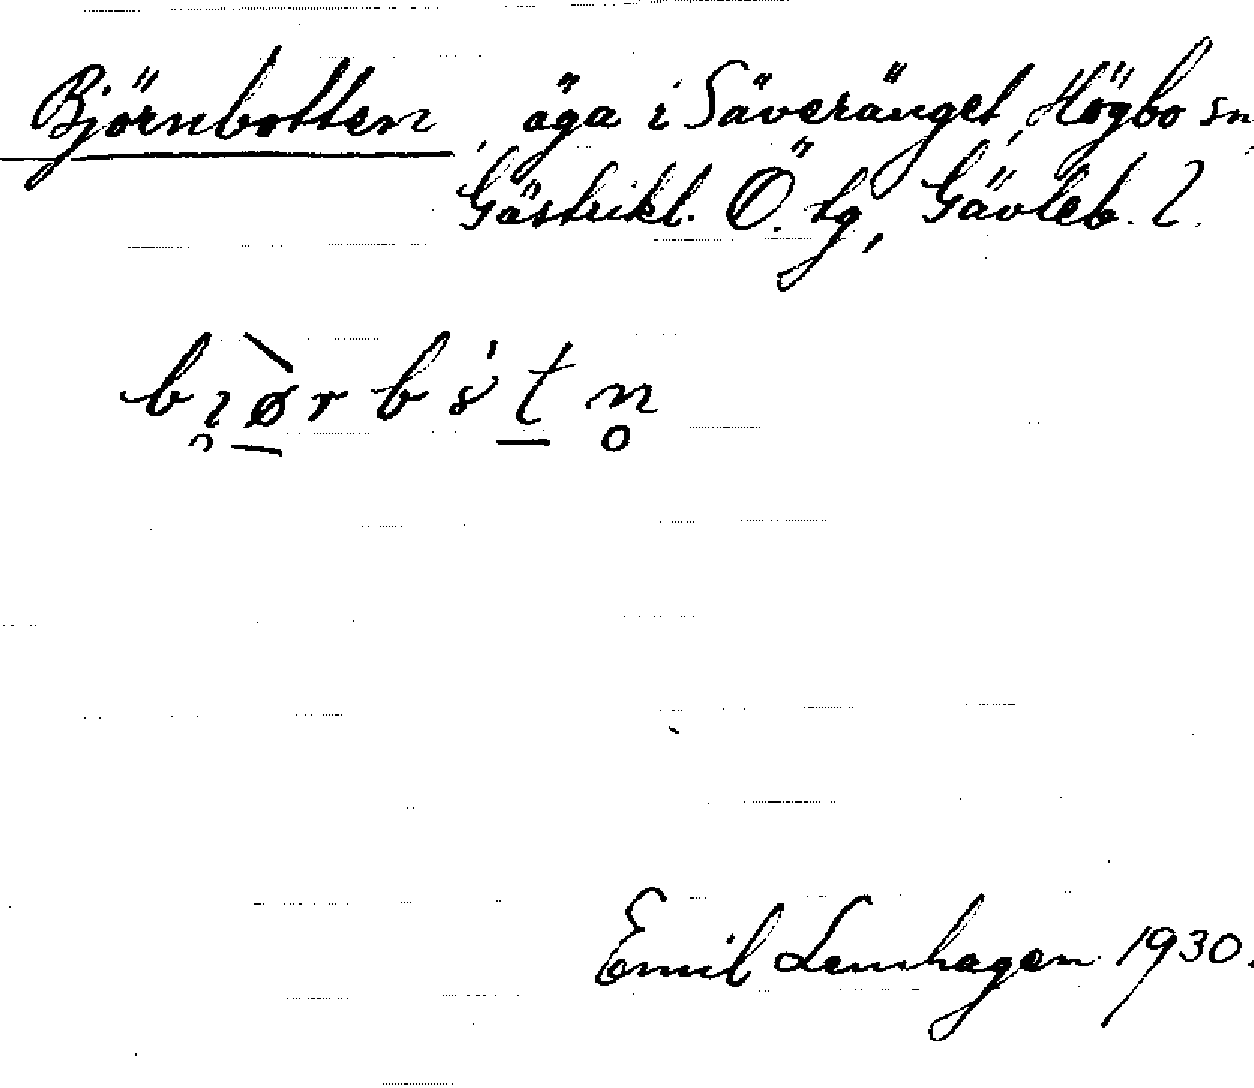 Björnbotten, äga i Säveränget, Högbo sn,
Gästrikl. Ö. tg, Gävleb. l.
Emil Lenhagen 1930.